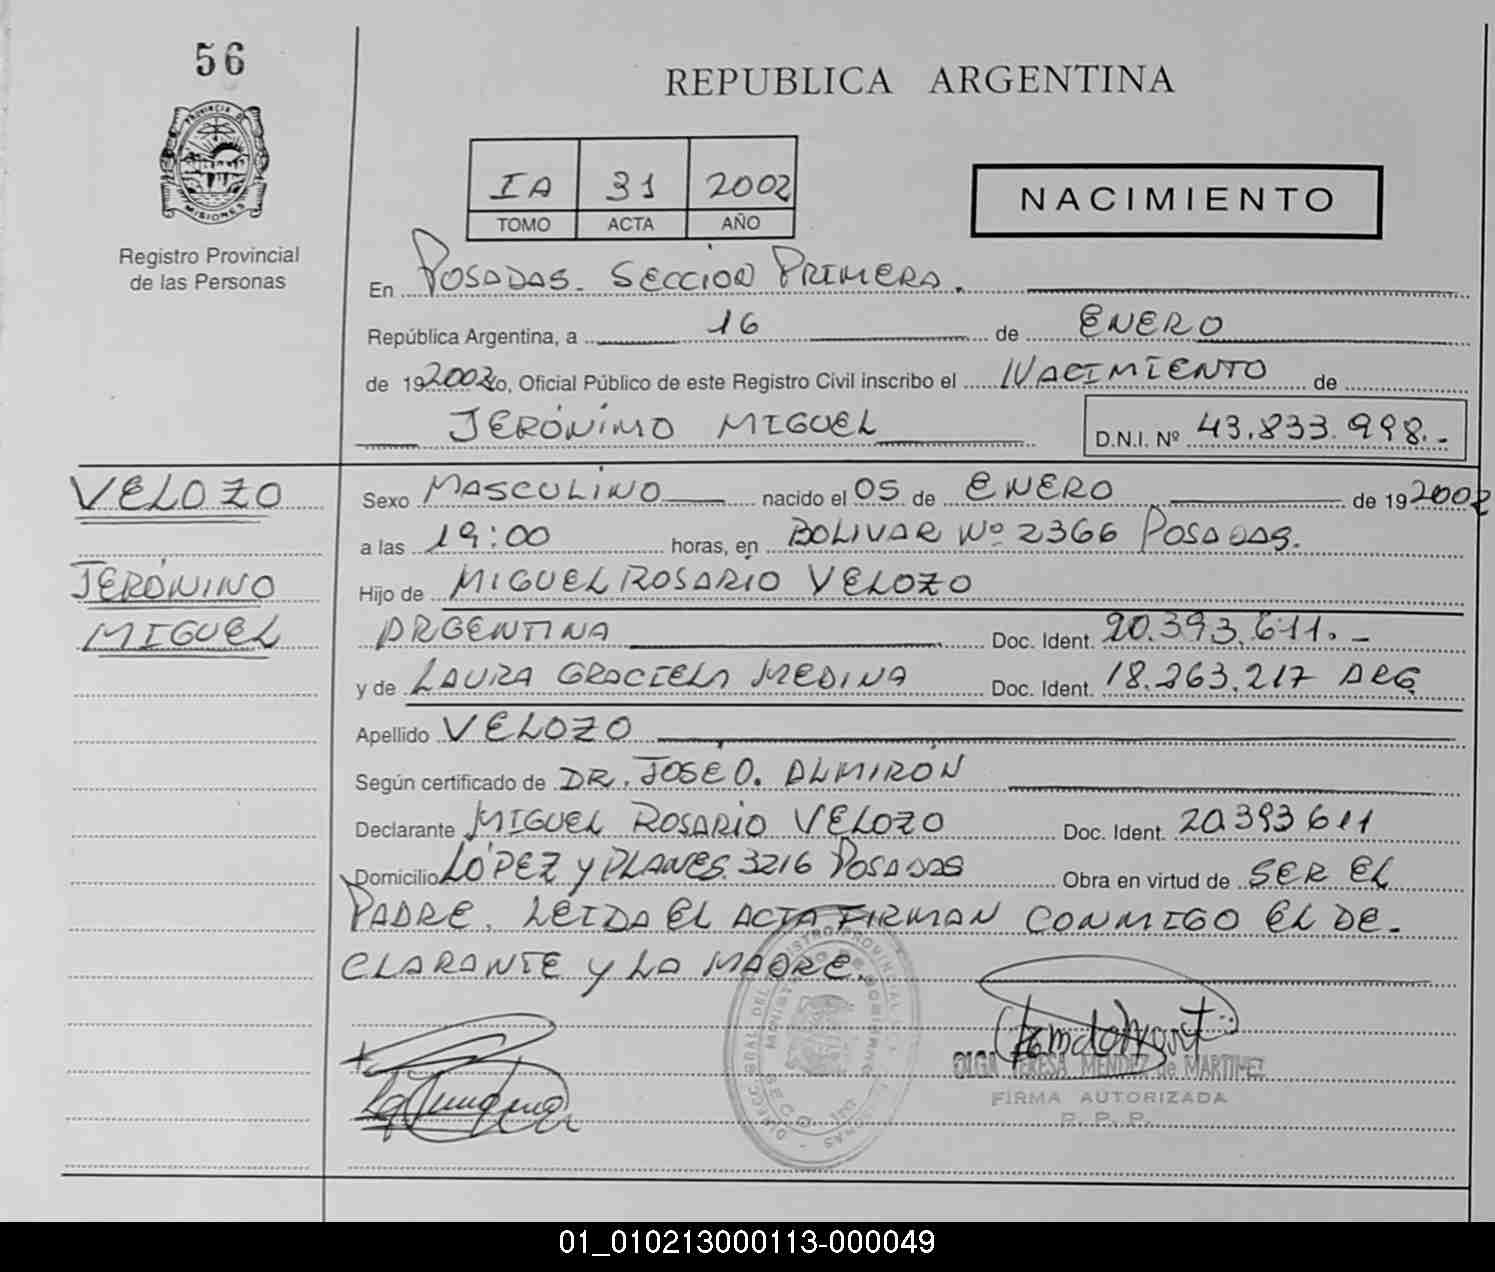 56
REPUBLICA ARGENTINA
PROVINCIA DE
MISIONES
Registro Provincial
de las Personas
IA 31 2002
TOMO ACTA AÑO
NACIMIENTO
En POSADAS. SECCION PRIMERA.
República Argentina, a 16 de ENERO
de 192002 yo, Oficial Público de este Registro Civil inscribo el NACIMIENTO de
JERÓNIMO MIGUEL D.N.I. Nº 43.833.998.-
VELOZO
JERÓNIMO
MIGUEL
Sexo MASCULINO nacido el 05 de ENERO de 192002
a las 19:00 horas, en BOLIVAR Nº 2366 POSADAS.
Hijo de MIGUEL ROSARIO VELOZO
ARGENTINA Doc. Ident. 20.393.611.-
y de LAURA GRACIELA MEDINA Doc. Ident. 18.263.217 ARG
Apellido VELOZO
Según certificado de DR. JOSE O. ALMIRÓN
Declarante MIGUEL ROSARIO VELOZO Doc. Ident. 20.393611
Domicilio LÓPEZ Y PLANES 3216 POSADAS Obra en virtud de SER EL
PADRE. LEIDA EL ACTA FIRMAN CONMIGO EL DE-
CLARANTE Y LA MADRE.
OLGA TERESA MENDEZ de MARTINEZ
FIRMA AUTORIZADA
R. P. P.
01_010213000113-000049